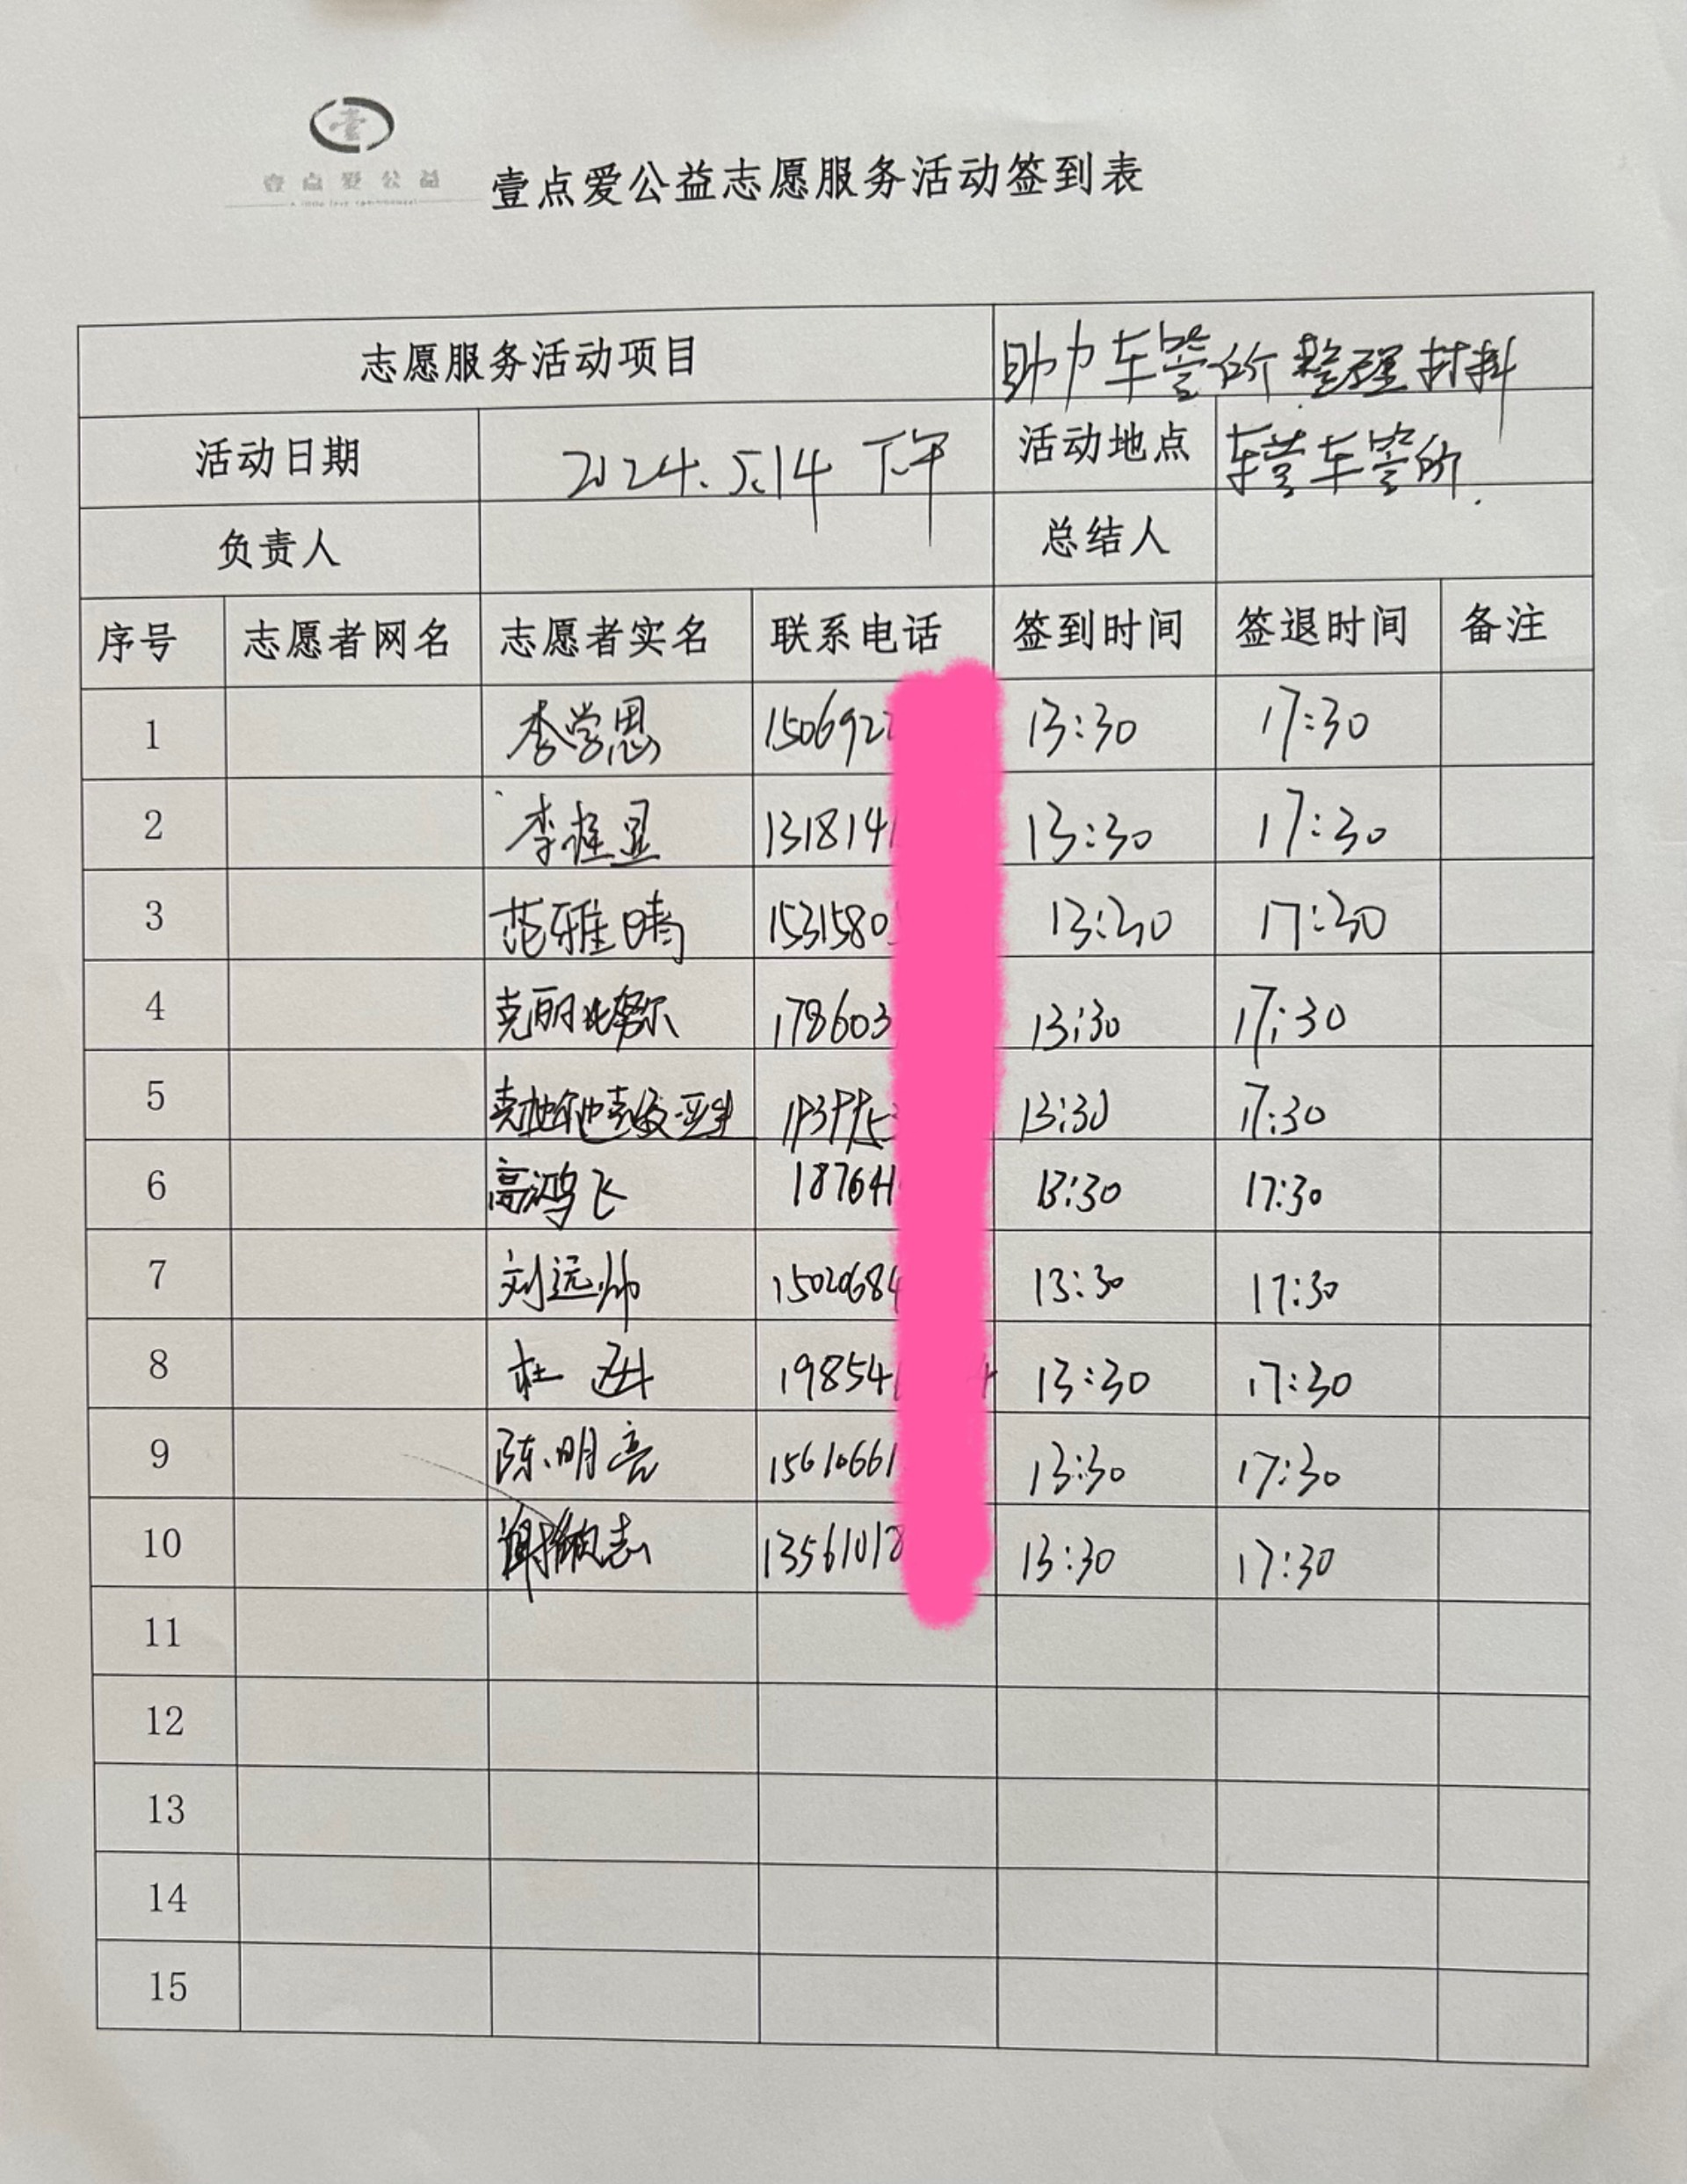 壹
壹点爱公益
壹点爱公益志愿服务活动签到表
志愿服务活动项目 助力车管所整理材料
活动日期 2024.5.14 下午 活动地点 车管所
负责人 总结人
序号 志愿者网名 志愿者实名 联系电话 签到时间 签退时间 备注
1 李学恩 1506922 13:30 17:30
2 李 131814 13:30 17:30
3 范雅晴 1531580 13:30 17:30
4 克丽比努尔 178603 13:30 17:30
5 13:30 17:30
6 高鸿飞 18764 13:30 17:30
7 刘远帅 15020684 13:30 17:30
8 杜 19854 4 13:30 17:30
9 陈明亮 15610661 13:30 17:30
10 谢 志 13561018 13:30 17:30
11
12
13
14
15